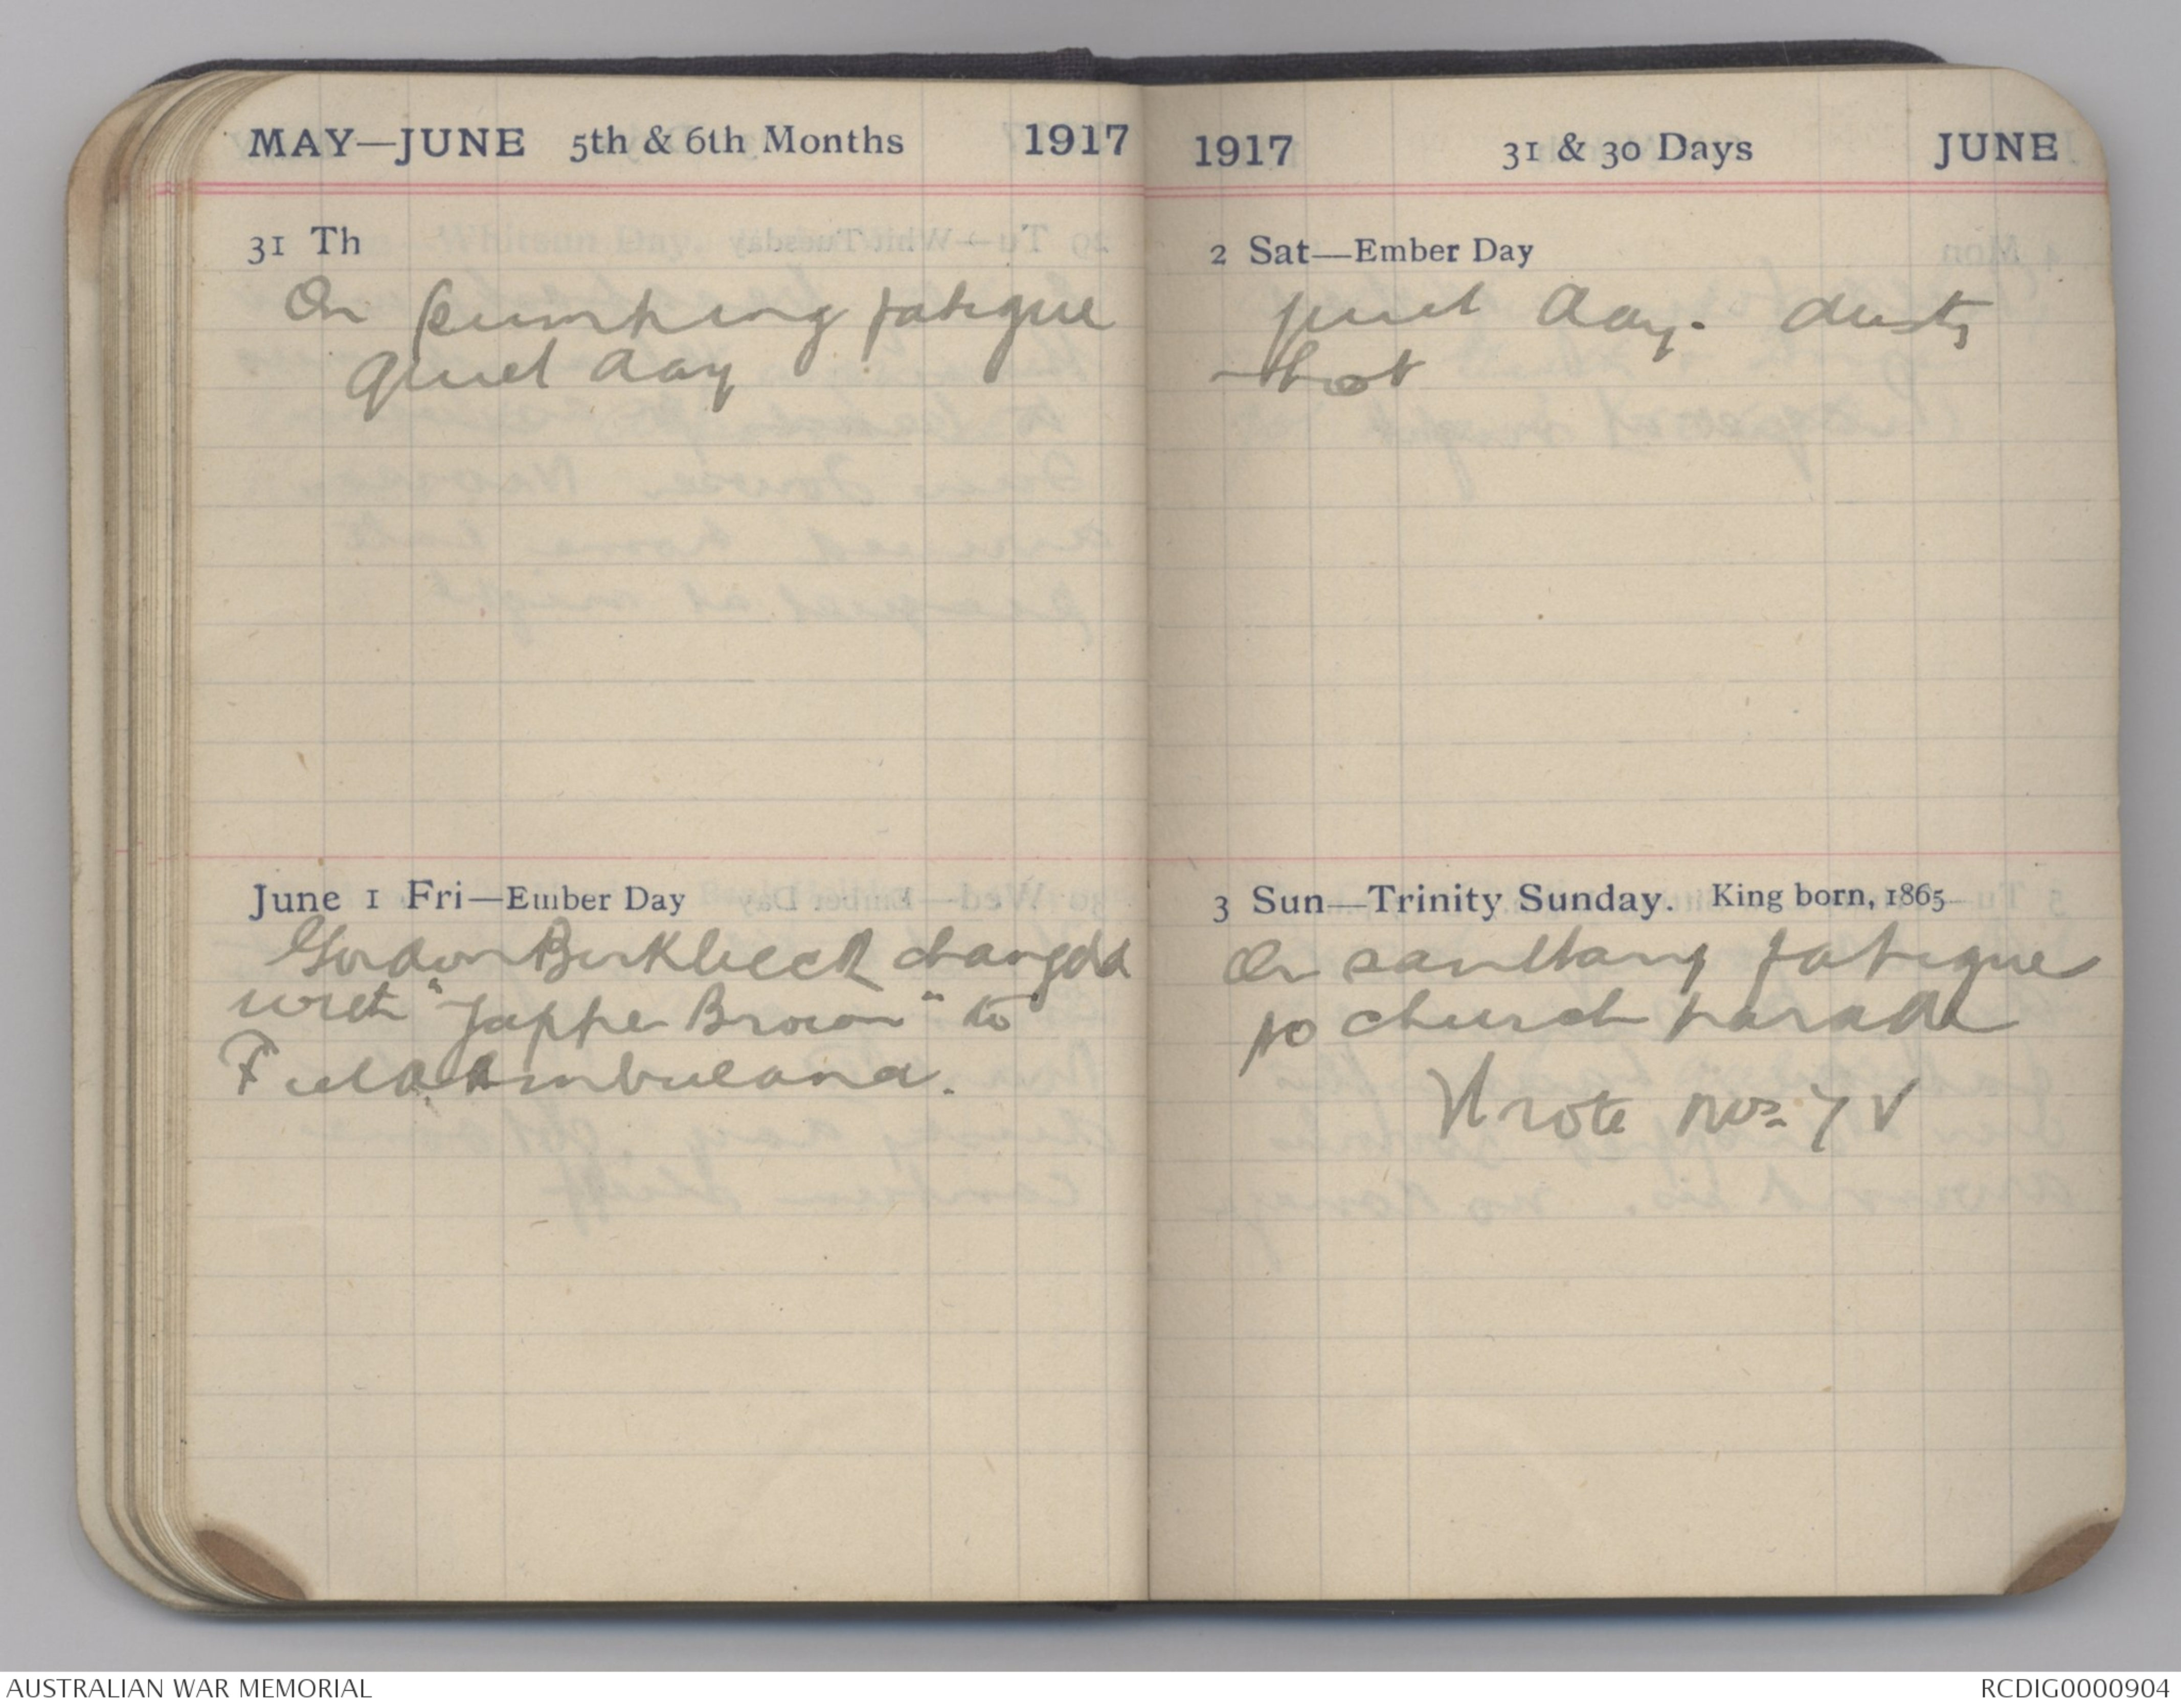 MAY—JUNE 5th & 6th Months 1917
31 Th
On pumping fatigue
quiet day
June 1 Fri—Ember Day
Gordon Birkbeck changed
with "Jappe Brown" to
Field Ambulance.
1917 31 & 30 Days JUNE
2 Sat—Ember Day
quiet day. dusty
hot
3 Sun—Trinity Sunday. King born, 1865
On sandbang fatigue
no church parade
Wrote nos. 7 V
AUSTRALIAN WAR MEMORIAL
RCDIG0000904